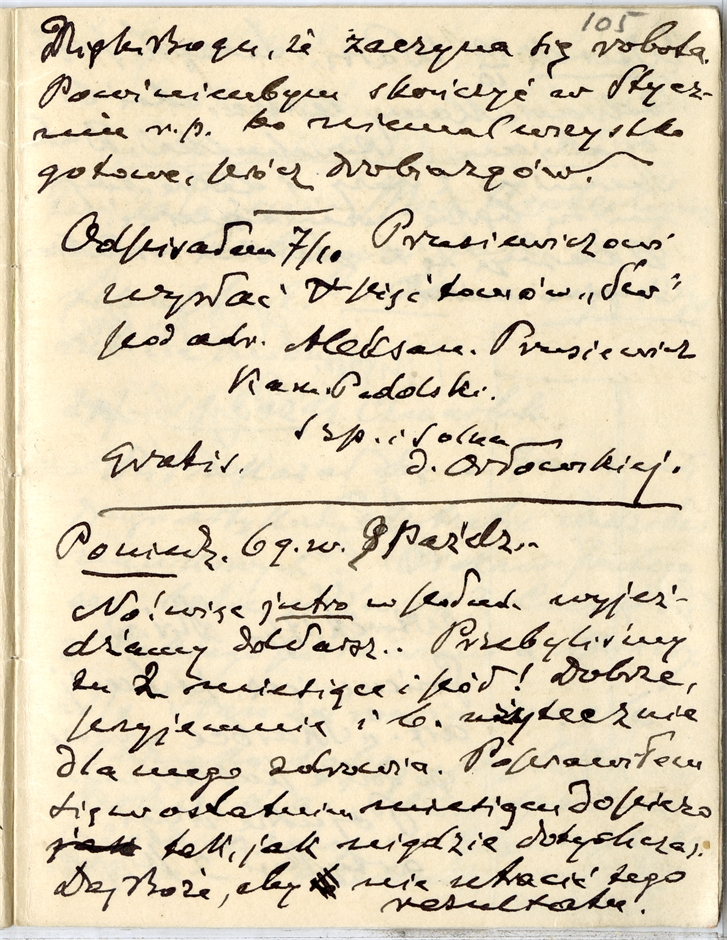 105
Dzięki Bogu, że zaczyna się robota.
Powinienbym skończyć w Stycz-
niu r.p. bo niemal wszystko
gotowe, prócz drobiazgów.
Odpisałem 7/10 Prusiewiczowi
wysłać pięć tomów „Sw"
pod adr. Aleksan. Prusiewicz
Kam. Podolski.
Szp. i Solna
Gratis. d. Orłowskiej.
Poniedz. 6 g. w. 8 Paźdz.
No i więc jutro w połud. wyjeż-
dżamy do Warsz.. Przebyliśmy
tu 2 miesiące i pół! Dobrze,
przyjemnie i b. użytecznie
dla mego zdrowia. Poprawiłem
się w ostatnim miesiącu dopiero
tak, jak nigdzie dotychczas.
Daj Boże, aby nie utracić tego
rezultatu.